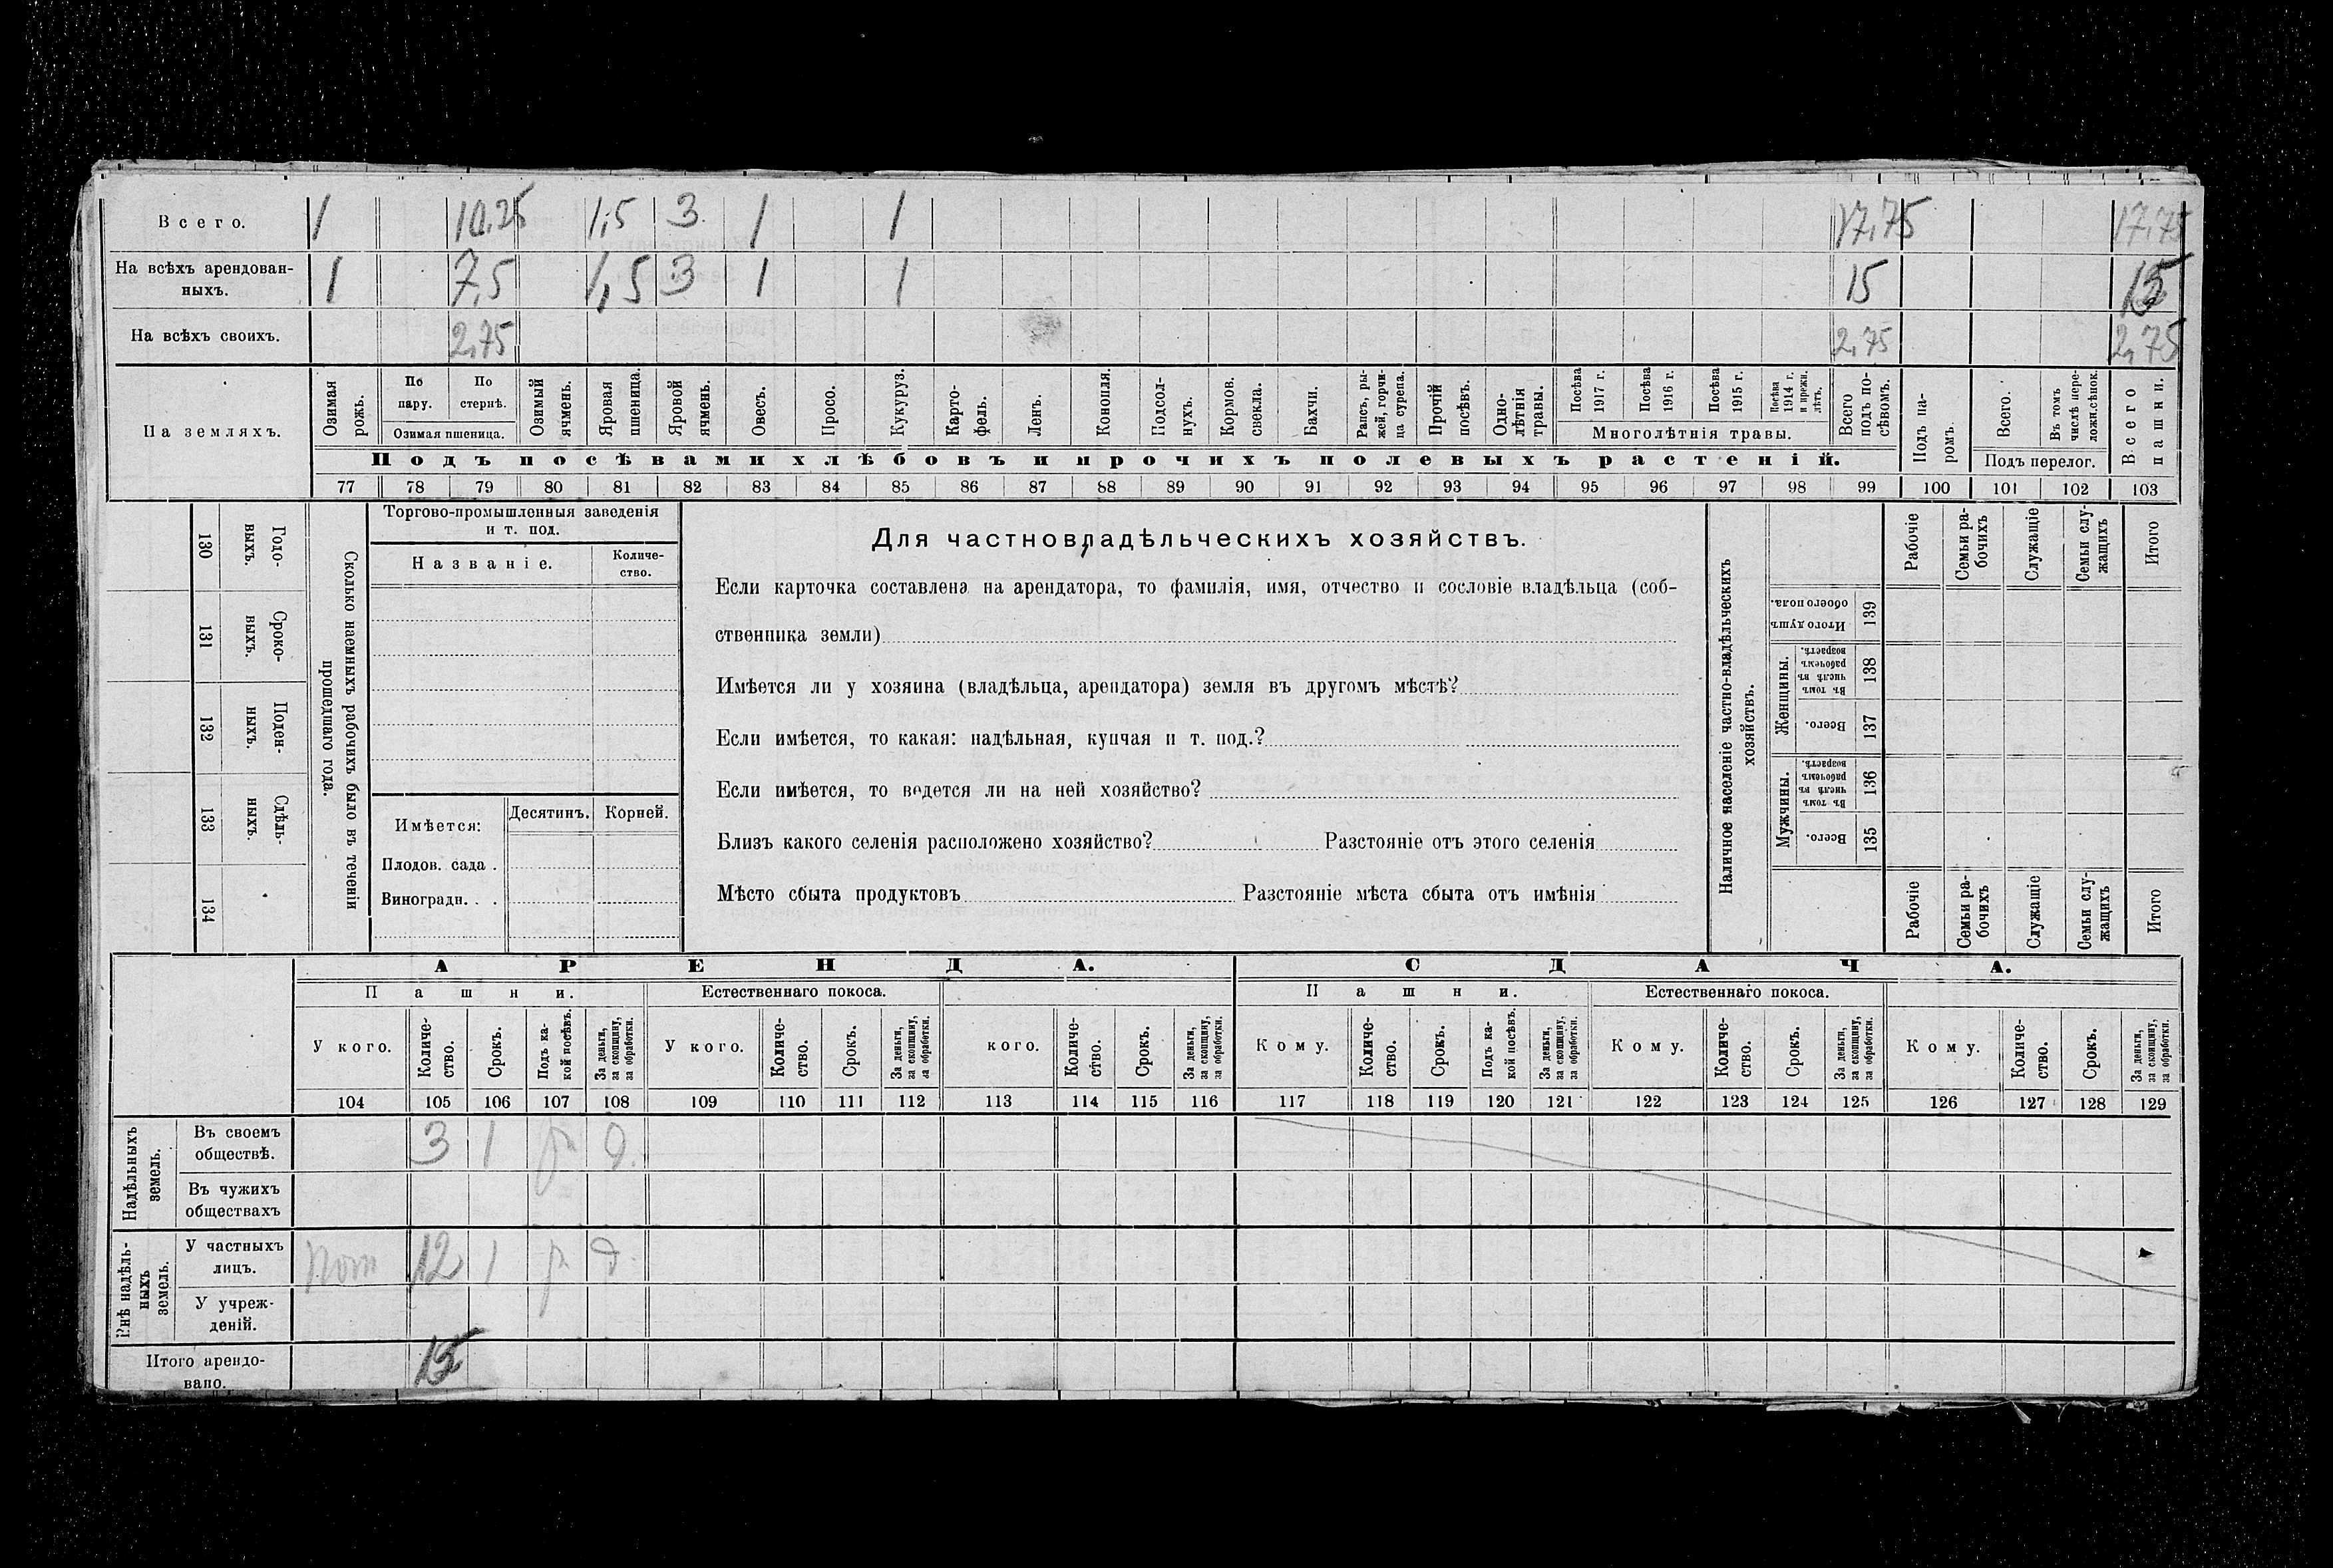 Всего. 1 10,25 1,5 3 1 1 17,75 17,75
На всѣхъ арендован-
ныхъ. 1 7,5 1,5 3 1 1 15 15
На всѣхъ своихъ. 2,75 2,75 2,75
На земляхъ.
Озимая рожь.
По пару.
По стернѣ.
Озимая пшеница.
Озимый ячмень.
Яровая пшеница.
Яровой ячмень.
Овесъ.
Просо.
Кукуруз.
Карто-
фель.
Ленъ.
Конопля.
Подсол-
нухъ.
Кормов.
свекла.
Бахчи.
Рапсъ, ры-
жей, горчи-
ца сурепа.
Прочій
посѣвъ.
Одно-
лѣтнія
травы.
Посѣва
1917 г.
Посѣва
1916 г.
Посѣва
1915 г.
Посѣва
1914 г.
и прежн.
лѣтъ.
Многолѣтнія травы.
Всего
подъ по-
сѣвомъ.
Подъ па-
ромъ.
Всего.
Въ томъ
числѣ пере-
лож.сѣнок.
Подъ перелог.
Всего
пашни.
Подъ посѣвами хлѣбовъ и прочихъ полевыхъ растеній.
77 78 79 80 81 82 83 84 85 86 87 88 89 90 91 92 93 94 95 96 97 98 99 100 101 102 103
130 Годо-
выхъ.
131 Сроко-
выхъ.
132 Поден-
ныхъ.
133 Сдѣль-
ныхъ.
134
Сколько наемныхъ рабочихъ было въ теченіи
прошедшаго года.
Торгово-промышленныя заведенія
и т. под.
Названіе.
Количе-
ство.
Имѣется: Десятинъ. Корней.
Плодов. сада .
Виноградн. . .
Для частновладѣльческихъ хозяйствъ.
Если карточка составлена на арендатора, то фамилія, имя, отчество и сословіе владѣльца (соб-
ственника земли)
Имѣется ли у хозяина (владѣльца, арендатора) земля въ другомъ мѣстѣ?
Если имѣется, то какая: надѣльная, купчая и т. под.?
Если имѣется, то ведется ли на ней хозяйство?
Близъ какого селенія расположено хозяйство? Разстояніе отъ этого селенія
Мѣсто сбыта продуктовъ Разстояніе мѣста сбыта отъ имѣнія
Наличное населеніе частно-владѣльческихъ
хозяйствъ.
Рабочіе
Семьи ра-
бочихъ
Служащіе
Семьи слу-
жащихъ
Итого
Итого душъ
обоего пола.
139
Женщины.
Въ томъ
числѣ въ
рабочемъ
возрастѣ.
138
Всего.
137
Мужчины.
Въ томъ
числѣ въ
рабочемъ
возрастѣ.
136
Всего.
135
Рабочіе
Семьи ра-
бочихъ
Служащіе
Семьи слу-
жащихъ
Итого
АРЕНДА. СДАЧА.
Пашни. Естественнаго покоса. Пашни. Естественнаго покоса.
У кого.
Количе-
ство.
Срокъ.
Подъ ка-
кой посѣвъ.
За деньги,
за скопщину,
за обработки.
У кого.
Количе-
ство.
Срокъ.
За деньги,
за скопщину,
за обработки.
кого.
Количе-
ство.
Срокъ.
За деньги,
за скопщину,
за обработки.
Кому.
Количе-
ство.
Срокъ.
Подъ ка-
кой посѣвъ.
За деньги,
за скопщину,
за обработки.
Кому.
Количе-
ство.
Срокъ.
За деньги,
за скопщину,
за обработки.
Кому.
Количе-
ство.
Срокъ.
За деньги,
за скопщину,
за обработки.
104 105 106 107 108 109 110 111 112 113 114 115 116 117 118 119 120 121 122 123 124 125 126 127 128 129
Надѣльныхъ
земель.
Въ своемъ
обществѣ. 3 1 д.
Въ чужихъ
обществахъ
Внѣ надѣль-
ныхъ
земель.
У частныхъ
лицъ. 12 1 д.
У учреж-
деній.
Итого арендо-
вано. 15